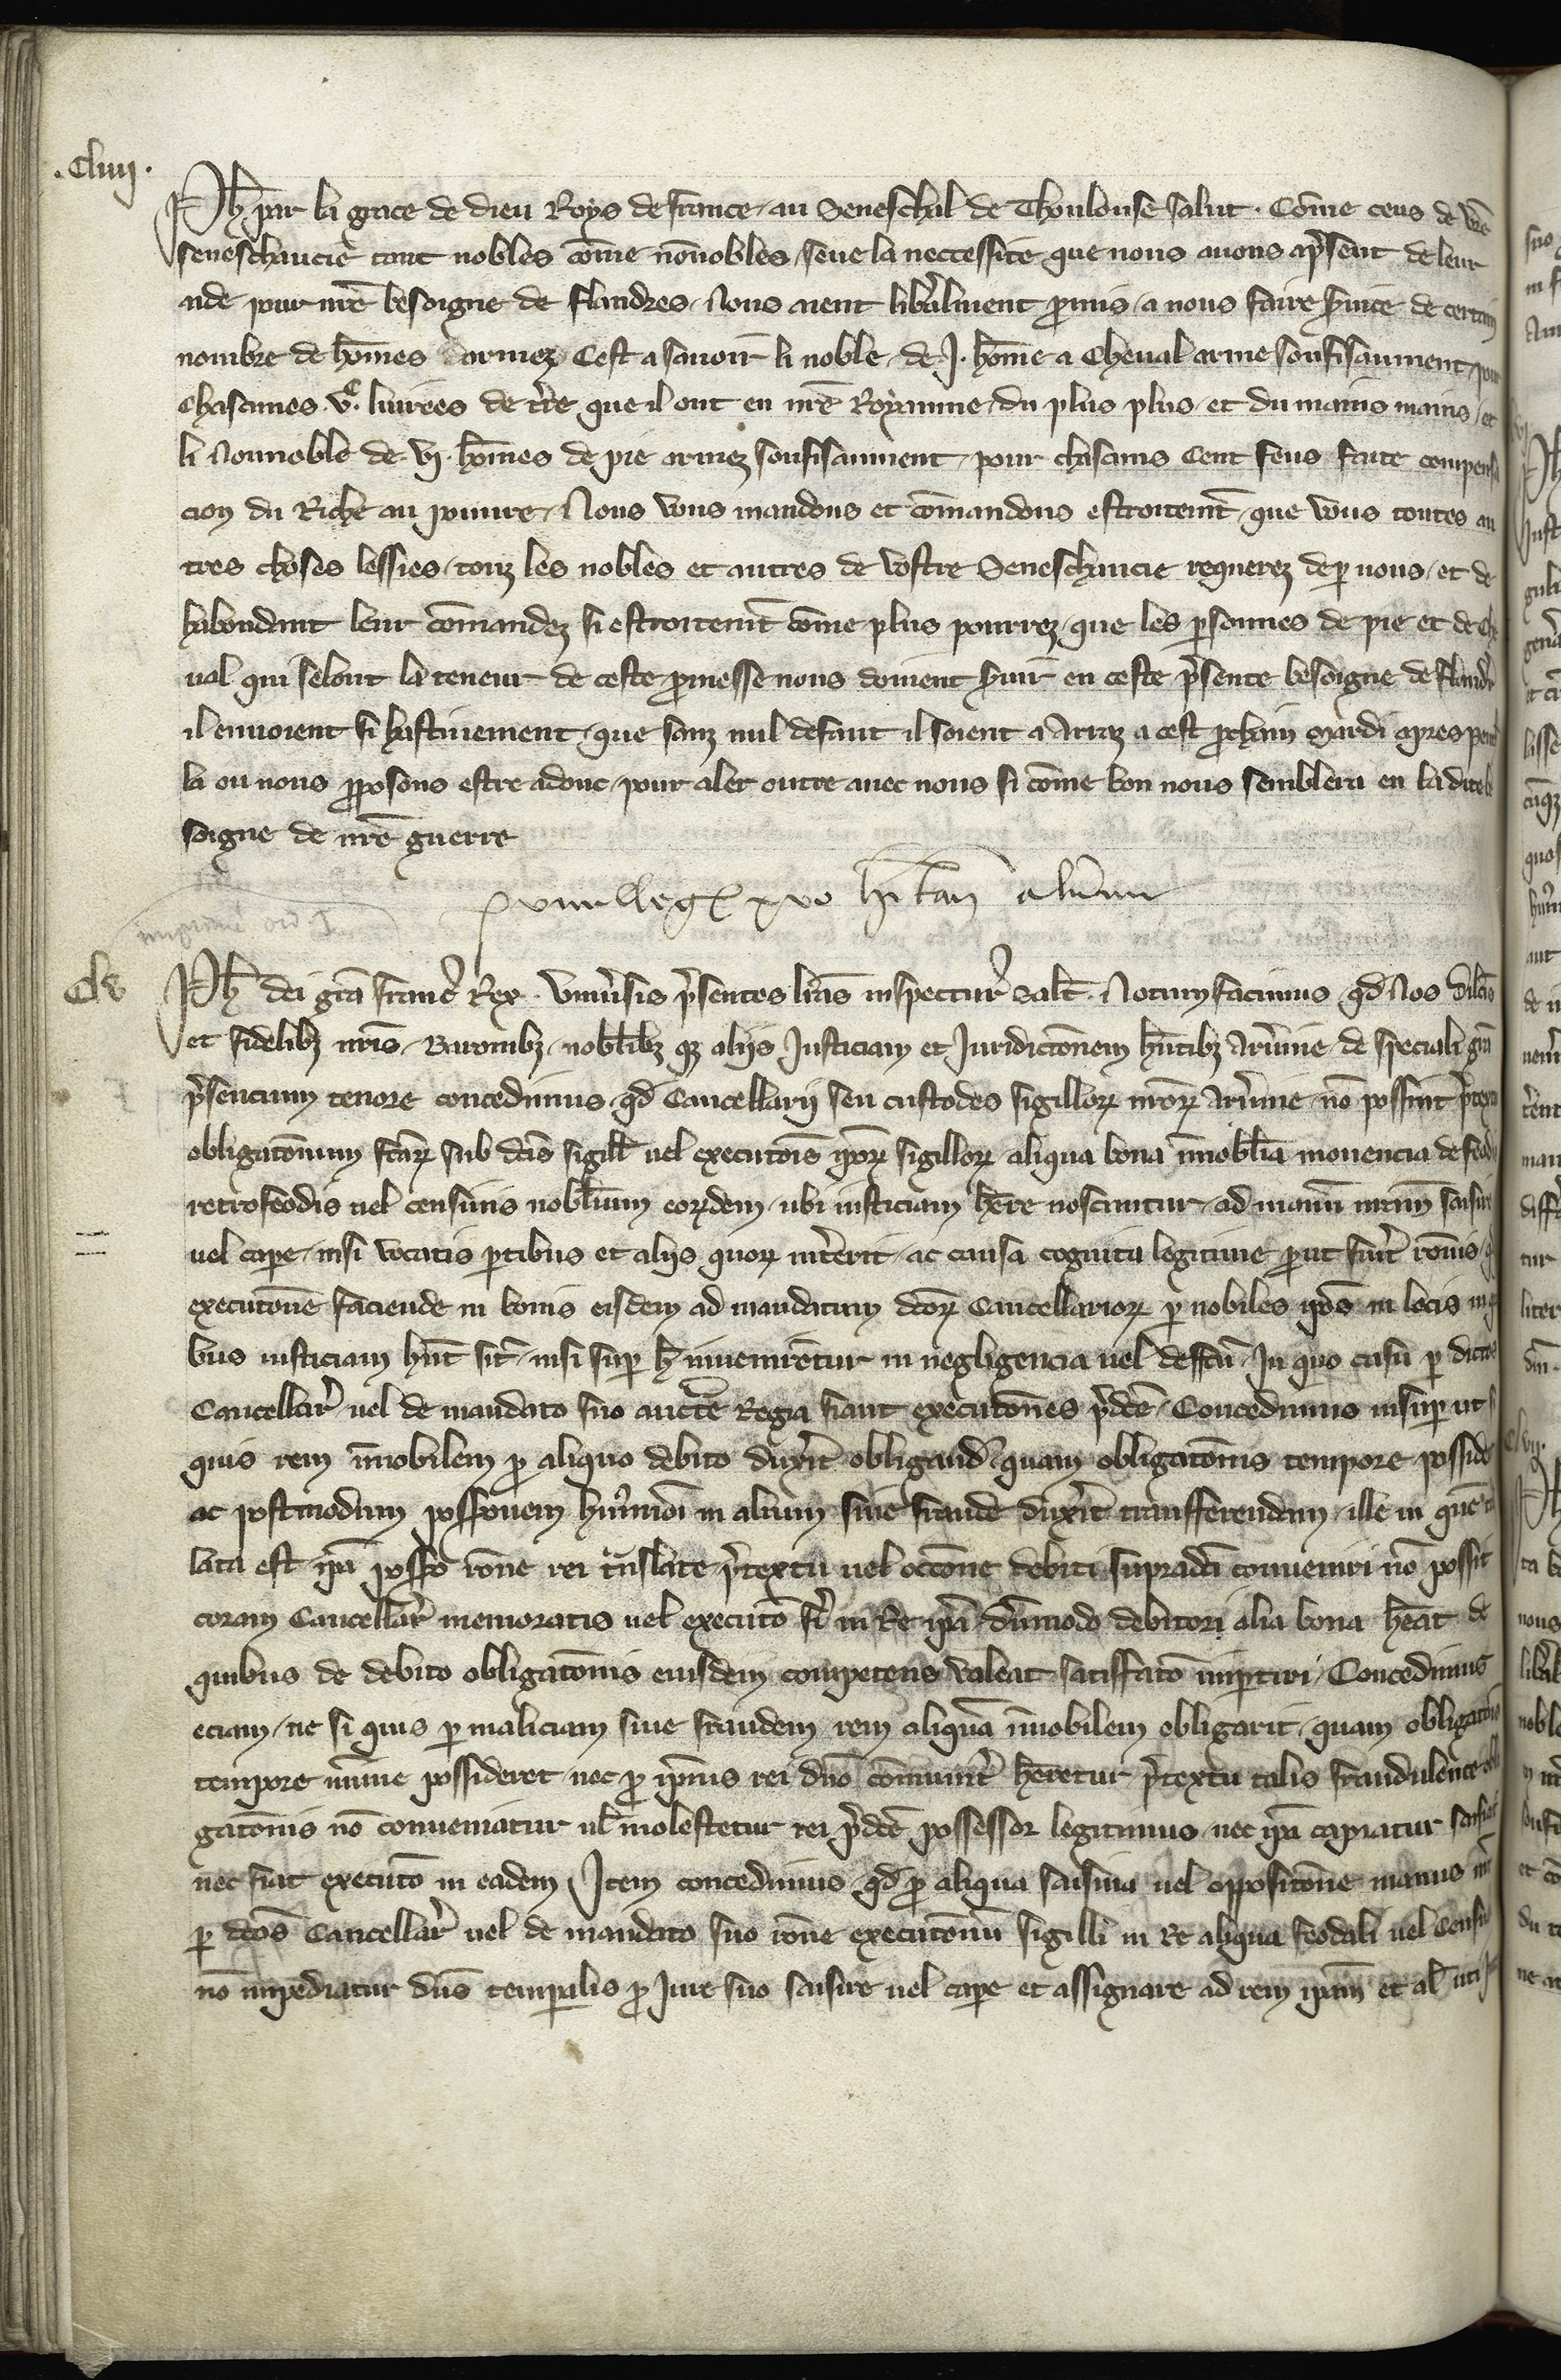 .Cliiij.
Ph par la grace de dieu Roys de france / au Seneschal de Thoulouse salut . Cōme ceus de vr̄e
seneschaucie tant nobles cōme nōnobles / seue la neccessite que nous auons a p̄sent de leur
aide pour nr̄e besoigne de flandres / Nous aient libālment p̄mis / a nous faire s̄uice de certain
nombre de hōmes darmez Cest asauoir li noble / de .J. hōme a Cheual arme souffisaument / pour
chascunes .vᶜ. liurees de tr̄re que il ont en nr̄e Royaume / du plus plus / et du mains mains / et
li Nonnoble de .vj. hōmes de pie armez souffisaument / pour chascuns Cent feus faite compensa
cion du Riche au poure / Nous vous mandons et cōmandons estroitemēt / que vous toutes au
tres choses lessies / touz les nobles et autres de vostre Seneschaucie requerez de p̱ nous / et de
habondant leur cōmandez si estroitemēt cōme plus pourrez / que les p̱sonnes de pie et de Che
ual qui selont la teneur de ceste p̄messe nous doiuent s̄uir en ceste p̄sente besoigne de flandr̄
il enuoient si hastiuement / que sanz nul defaut il soient a Arraz a cest p̄chain Mardi apres penth
la ou nous p̄posons estre adonc / pour aler outre auec nous si cōme bon nous semblera en la dite be
soigne de nr̄e guerre
Clv
Ph dei grā franc̄ Rex . Vniūsis p̄sentes lrās inspectur̄ salt̄ . Notum facimus qd̄ Nos dilcīs
et fidelibꝫ nrīs / Baronibꝫ / nobl̄ibꝫ qꝫ alijs Justiciam et Juridictōnem hn̄tibꝫ Arūnie / de speciali grā
p̄sencium tenore concedimus / qd̄ Cancellarij seu custodes sigillorꝝ nrōrꝝ Arūnie / nō possint p̄textu
obligatōnum fcārꝝ sub dcīs sigill̄ vel executōis ip̄orꝝ sigillorꝝ / aliqua bona īmobl̄ia mouencia de feodis
retrofeodis uel censiuis nobl̄ium eorꝝdem / ubi iusticiam hr̄e noscuntur / ad manū nrām saisire
vel cape / nisi vocatis p̱tibus et alijs quorꝝ int̄erit / ac causa cognita legitime p̄ut fuit̄ rōnis /
executōnē faciende in bonis eisdem ad mandatum dcōrꝝ Cancellariorꝝ p̱ nobiles ip̄os in locis in q
bus iusticiam hn̄t sit̄ / nisi sup̱ h̄ inuenirētur in negligencia uel deffcū / In quo casu p̱ dictos
Cancellar̄ uel de mandato suo auctē Regia fiant executōnes p̄dcē / Concedimus insup̱ ut si
quis rem īmobilem p̄ aliquo debito duxit̄ obligand̄ / quam obligatōnis tempore posside
ac postmodum possōnem hūmōi in alium sine fraude duxit̄ transferendam / ille in quē tns
lata est ip̄a possō rōne rei tn̄slate / p̄textu uel occōne debiti supradcī conueniri nō possit
coram Cancellar̄ memoratis uel executō fi̅ in Re ip̄a / dūmodo debitori alia bona heāt de
quibus de debito obligatōnis eiusdem competens valeat satisfatō imp̱tiri / Concedimus
eciam / ne si quis p̱ maliciam siue fraudem rem aliquā īmobilem obligarit / quam obligatōis
tempore mīme possideret / nec p̄ ipsius rei dnō cōmuniṫ hēretur / p̄textu talis fraudulente obli
gatōnis nō conueniatur ul̄ molestetur rei p̄dcē possessor legitimus / nec ip̄a capiatur saisiat̄
nec fiat executō in eadem / Item concedimus / qd̄ p̄ aliqua saisina uel oppositōne manus nrē
p̱ dcōs Cancellar̄ uel de mandato suo rōne executōnū sigilli in Re aliqua feodali uel Censu
nō impediatur dn̄s temp̱alis p̄ Jure suo saisire uel cape et assignare ad rem ip̄am et al̄ uti Ju